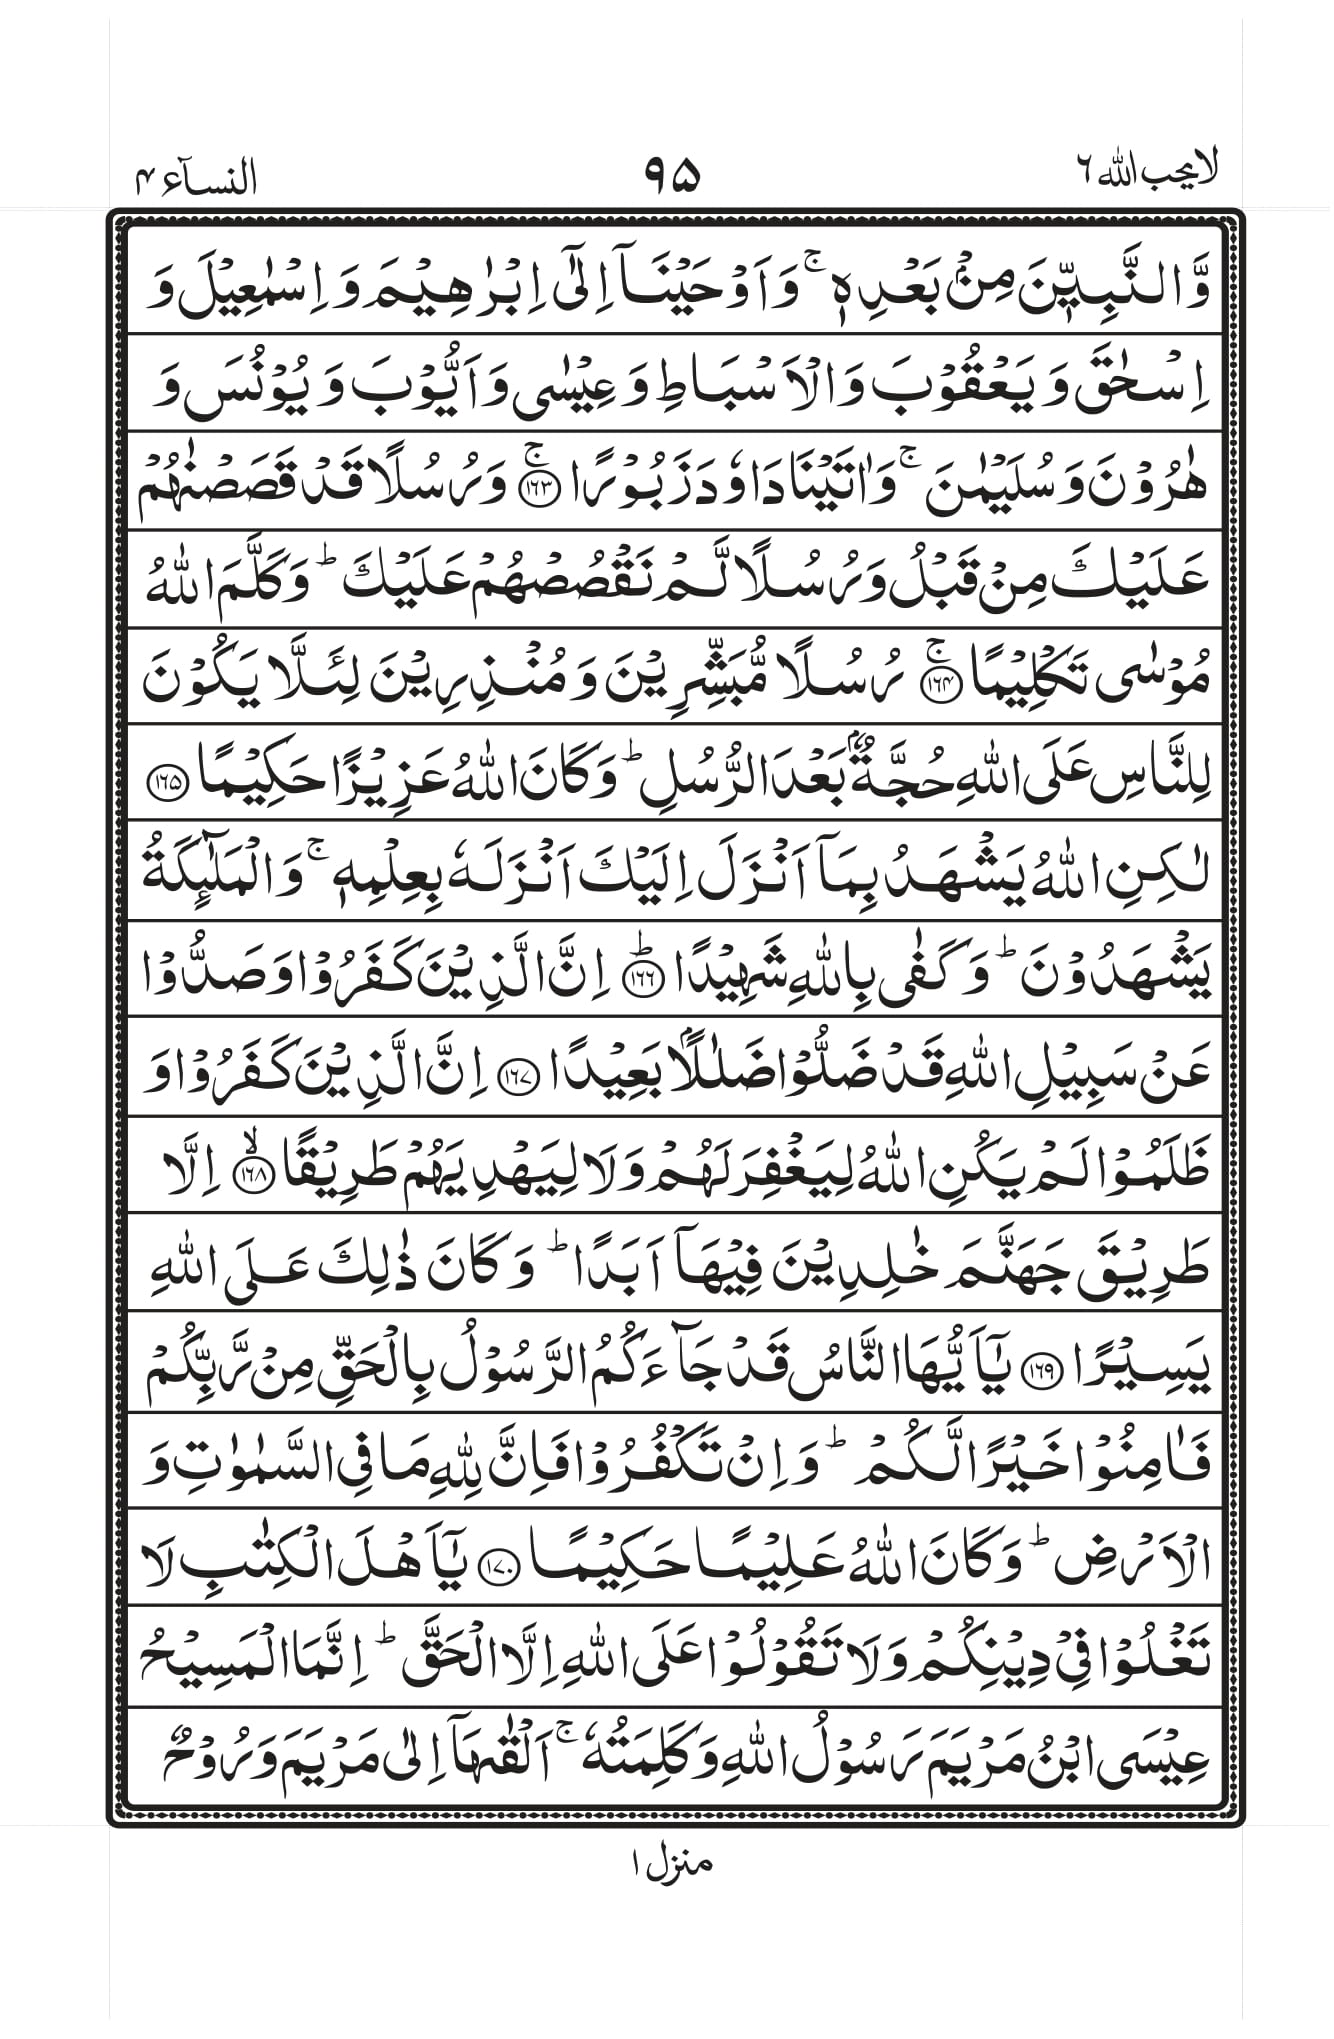 لایحب الله ۶
۹۵
النسآء ۴
وَّالنَّبِيّٖنَ مِنْۢ بَعْدِهٖ ۚ وَاَوْحَيْنَاۤ اِلٰۤى اِبْرٰهِيْمَ وَ اِسْمٰعِيْلَ وَ
اِسْحٰقَ وَ يَعْقُوْبَ وَالْاَسْبَاطِ وَعِيْسٰى وَاَيُّوْبَ وَيُوْنُسَ وَ
هٰرُوْنَ وَسُلَيْمٰنَ ۚ وَاٰتَيْنَا دَاوٗدَ زَبُوْرًا ۚ۝۱۶۳ وَرُسُلًا قَدْ قَصَصْنٰهُمْ
عَلَيْكَ مِنْ قَبْلُ وَرُسُلًا لَّمْ نَقْصُصْهُمْ عَلَيْكَ ؕ وَكَلَّمَ اللّٰهُ
مُوْسٰى تَكْلِيْمًا ۚ۝۱۶۴ رُسُلًا مُّبَشِّرِيْنَ وَمُنْذِرِيْنَ لِئَلَّا يَكُوْنَ
لِلنَّاسِ عَلَى اللّٰهِ حُجَّةٌۢ بَعْدَ الرُّسُلِ ؕ وَكَانَ اللّٰهُ عَزِيْزًا حَكِيْمًا ۝۱۶۵
لٰكِنِ اللّٰهُ يَشْهَدُ بِمَاۤ اَنْزَلَ اِلَيْكَ اَنْزَلَهٗ بِعِلْمِهٖ ۚ وَالْمَلٰٓئِكَةُ
يَشْهَدُوْنَ ؕ وَكَفٰى بِاللّٰهِ شَهِيْدًا ؕ۝۱۶۶ اِنَّ الَّذِيْنَ كَفَرُوْا وَصَدُّوْا
عَنْ سَبِيْلِ اللّٰهِ قَدْ ضَلُّوْا ضَلٰلًاۢ بَعِيْدًا ۝۱۶۷ اِنَّ الَّذِيْنَ كَفَرُوْا وَ
ظَلَمُوْا لَمْ يَكُنِ اللّٰهُ لِيَغْفِرَ لَهُمْ وَلَا لِيَهْدِيَهُمْ طَرِيْقًا ۙ۝۱۶۸ اِلَّا
طَرِيْقَ جَهَنَّمَ خٰلِدِيْنَ فِيْهَاۤ اَبَدًا ؕ وَكَانَ ذٰلِكَ عَلَى اللّٰهِ
يَسِيْرًا ۝۱۶۹ يٰۤاَيُّهَا النَّاسُ قَدْ جَآءَكُمُ الرَّسُوْلُ بِالْحَقِّ مِنْ رَّبِّكُمْ
فَاٰمِنُوْا خَيْرًا لَّكُمْ ؕ وَاِنْ تَكْفُرُوْا فَاِنَّ لِلّٰهِ مَا فِى السَّمٰوٰتِ وَ
الْاَرْضِ ؕ وَكَانَ اللّٰهُ عَلِيْمًا حَكِيْمًا ۝۱۷۰ يٰۤاَهْلَ الْكِتٰبِ لَا
تَغْلُوْا فِىْ دِيْنِكُمْ وَلَا تَقُوْلُوْا عَلَى اللّٰهِ اِلَّا الْحَقَّ ؕ اِنَّمَا الْمَسِيْحُ
عِيْسَى ابْنُ مَرْيَمَ رَسُوْلُ اللّٰهِ وَكَلِمَتُهٗ ۚ اَلْقٰىهَاۤ اِلٰى مَرْيَمَ وَرُوْحٌ
منزل ۱